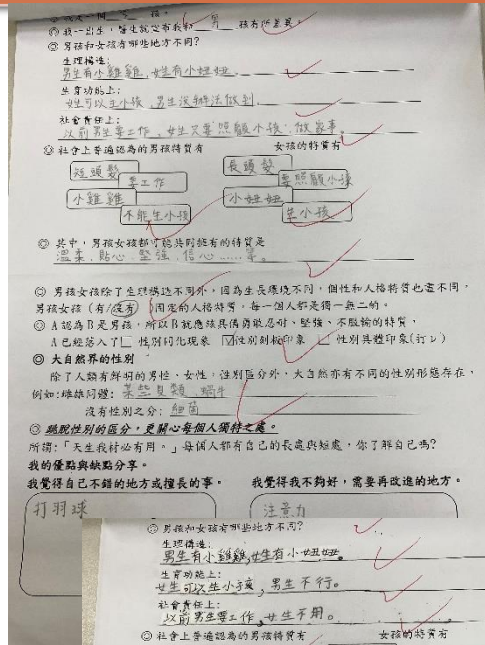 ◎ 我是一個 女 孩。
◎ 我一出生,醫生就宣布我和 男 孩有所差異。
◎ 男孩和女孩有哪些地方不同?
生理構造:
男生有小雞雞,女生有小妞妞。
生育功能上:
女生可以生小孩,男生沒辦法做到
社會責任上:
以前男生要工作,女生只要照顧小孩,做家事。
◎ 社會上普遍認為的男孩特質有 女孩的特質有
短頭髮 長頭髮
要工作 要照顧小孩
小雞雞 小妞妞
不能生小孩 生小孩
◎ 其中,男孩女孩都可能共同擁有的特質是
溫柔、貼心、堅強、信心……等。
◎ 男孩女孩除了生理構造不同外,因為生長環境不同,個性和人格特質也會不同,
男孩女孩(有/沒有)固定的人格特質,每一個人都是獨一無二的。
◎ A認為B是男孩,所以B就應該具備勇敢忍耐、堅強、不服輸的特質,
A已經落入了□ 性別同化現象 ☑性別刻板印象 □ 性別具體印象(打ㄴ)
◎ 大自然界的性別
除了人類有鮮明的男性、女性,性別區分外,大自然亦有不同的性別形態存在,
例如:雌雄同體:某些貝類、蝸牛
沒有性別之分:細菌
◎ 跳脫性別的區分,更關心每個人獨特之處。
所謂:「天生我材必有用。」每個人都有自己的長處與短處,你了解自己嗎?
我的優點與缺點分享。
我覺得自己不錯的地方或擅長的事。 我覺得我不夠好,需要再改進的地方。
打羽球 注意力
◎ 男孩和女孩有哪些地方不同?
生理構造:
男生有小雞雞,女生有小妞妞。
生育功能上:
女生可以生小孩,男生不行。
社會責任上:
以前男生要工作,女生不用。
◎ 社會上普遍認為的男孩特質有 女孩的特質有